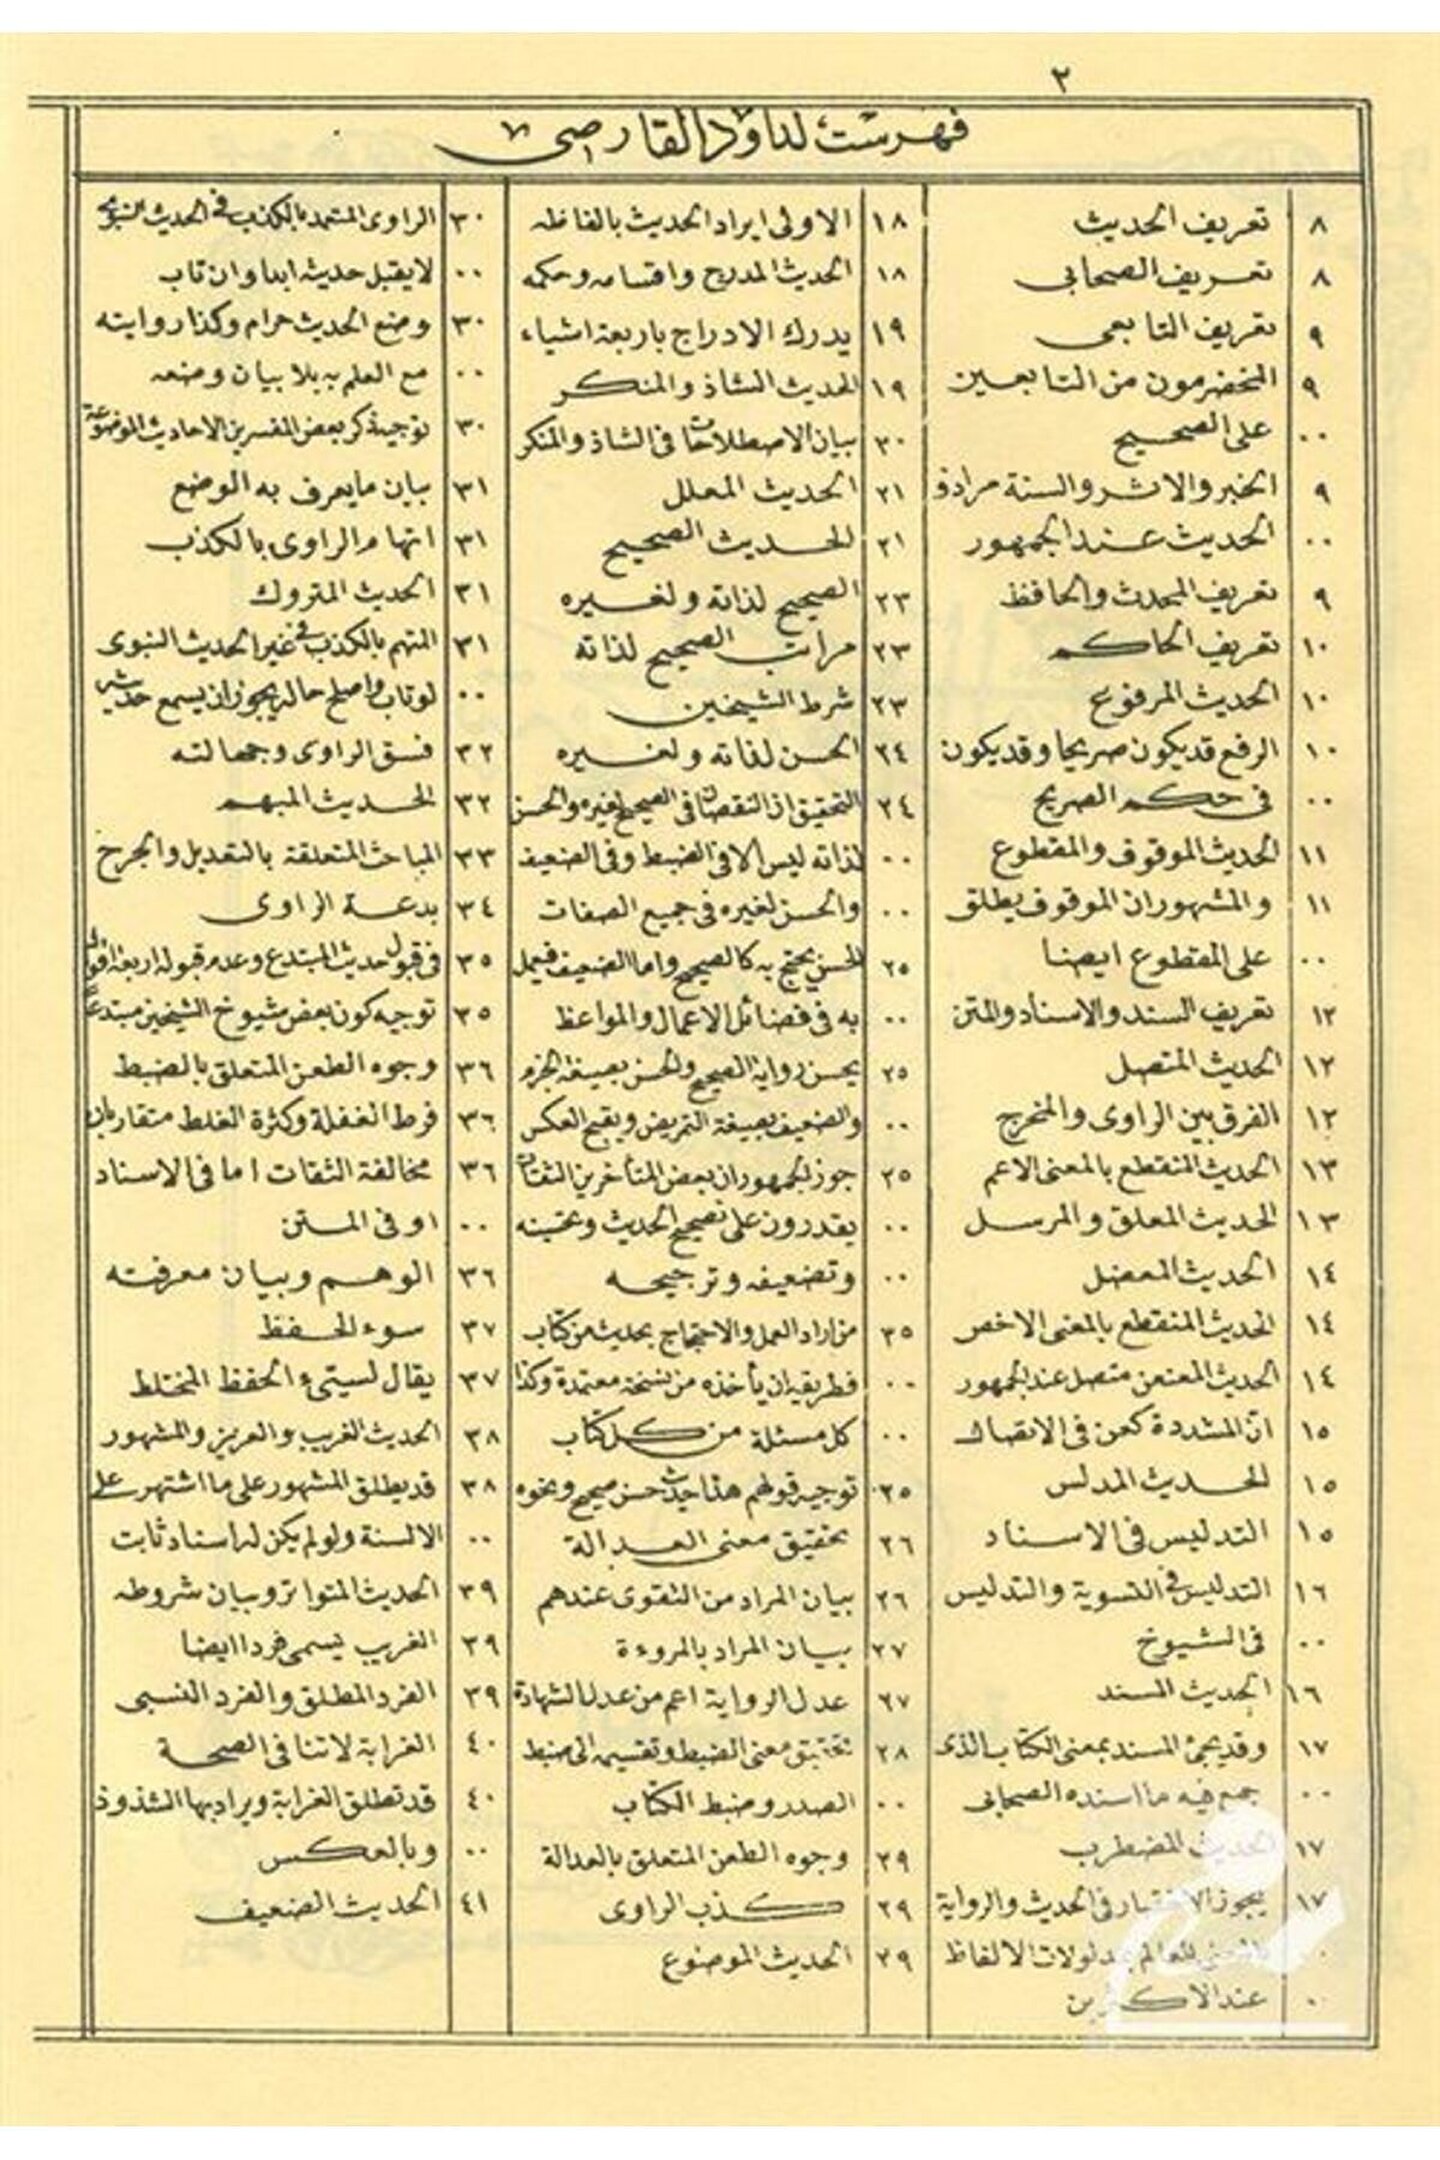 ٢
فهرست لداود القارصى
٨ تعريف الحديث
٨ تعريف الصحابى
٩ تعريف التابعى
٩ المخضرمون من التابعين
٠٠ على الصحيح
٩ الخبر والاثر والسنة مرادف
٠٠ الحديث عند الجمهور
٩ تعريف المحدث والحافظ
١٠ تعريف الحاكم
١٠ الحديث المرفوع
١٠ الرفع قد يكون صريحا وقد يكون
٠٠ فى حكم الصريح
١١ الحديث الموقوف والمقطوع
١١ والمشهور ان الموقوف يطلق
٠٠ على المقطوع ايضا
١٢ تعريف السند والاسناد والمتن
١٢ الحديث المتصل
١٢ الفرق بين الراوى والمخرج
١٣ الحديث المنقطع بالمعنى الاعم
١٣ الحديث المعلق والمرسل
١٤ الحديث المعضل
١٤ الحديث المنقطع بالمعنى الاخص
١٤ الحديث المعنعن متصل عند الجمهور
١٥ انّ المشددة كعن فى الاتصال
١٥ الحديث المدلس
١٥ التدليس فى الاسناد
١٦ التدليس فى التسوية والتدليس
٠٠ فى الشيوخ
١٦ الحديث المسند
١٧ وقد يجئ المسند بمعنى الكتاب الذى
٠٠ جمع فيه ما اسنده الصحابى
١٧ الحديث المضطرب
١٧ يجوز الاختصار فى الحديث والرواية
٠٠ بالمعنى للعالم بمدلولات الالفاظ
٠٠ عند الاكثرين
١٨ الاولى ايراد الحديث بالفاظه
١٨ الحديث المدرج واقسامه وحكمه
١٩ يدرك الادراج باربعة اشياء
١٩ الحديث الشاذ والمنكر
٣٠ بيان الاصطلاحات فى الشاذ والمنكر
٢١ الحديث المعلل
٢١ الحديث الصحيح
٢٣ الصحيح لذاته ولغيره
٢٣ مراتب الصحيح لذاته
٢٣ شرط الشيخين
٢٤ الحسن لذاته ولغيره
٢٤ التحقيق ان النقصان فى الصحيح لغيره والحسن
٠٠ لذاته ليس الا فى الضبط وفى الضعيف
٠٠ والحسن لغيره فى جميع الصفات
٢٥ الحسن يحتج به كالصحيح واما الضعيف فيعمل
٠٠ به فى فضائل الاعمال والمواعظ
٢٥ يحسن رواية الصحيح والحسن بصيغة الجزم
٠٠ والضعيف بصيغة التمريض ويقبح العكس
٢٥ جوز الجمهور ان بعض المتأخرين الثقات
٠٠ يقدرون على تصحيح الحديث وتحسينه
٠٠ وتضعيفه وترجيحه
٢٥ من اراد العمل والاحتجاج بحديث من كتاب
٠٠ فطريقه ان يأخذه من نسخة معتمدة وكذا
٠٠ كل مسئلة من كل كتاب
٢٥ توجيه قولهم هذا حديث حسن صحيح ونحوه
٢٦ تحقيق معنى العدالة
٢٦ بيان المراد من التقوى عندهم
٢٧ بيان المراد بالمروءة
٢٧ عدل الرواية اعم من عدل الشهادة
٢٨ تحقيق معنى الضبط وتقسيمه الى ضبط
٠٠ الصدر وضبط الكتاب
٢٩ وجوه الطعن المتعلق بالعدالة
٢٩ كذب الراوى
٢٩ الحديث الموضوع
٣٠ الراوى المتعمد بالكذب فى الحديث النبوى
٠٠ لا يقبل حديثه ابدا وان تاب
٣٠ وضع الحديث حرام وكذا روايته
٠٠ مع العلم به بلا بيان وضعه
٣٠ توجيه ذكر بعض المفسرين الاحاديث الموضوعة
٣١ بيان ما يعرف به الوضع
٣١ اتهام الراوى بالكذب
٣١ الحديث المتروك
٣١ المتهم بالكذب فى غير الحديث النبوى
٠٠ لو تاب واصلح حاله يجوز ان يسمع حديثه
٣٢ فسق الراوى وجهالته
٣٢ الحديث المبهم
٣٣ المباحث المتعلقة بالتعديل والجرح
٣٤ بدعة الراوى
٣٥ فى قبول حديث المبتدع وعدم قبوله اربعة اقوال
٣٥ توجيه كون بعض شيوخ الشيخين مبتدعا
٣٦ وجوه الطعن المتعلق بالضبط
٣٦ فرط الغفلة وكثرة الغلط متقاربان
٣٦ مخالفة الثقات اما فى الاسناد
٠٠ او فى المتن
٣٦ الوهم وبيان معرفته
٣٧ سوء الحفظ
٣٧ يقال لسيئ الحفظ المختلط
٣٨ الحديث الغريب والعزيز والمشهور
٣٨ قد يطلق المشهور على ما اشتهر على
٠٠ الالسنة ولو لم يكن له اسناد ثابت
٣٩ الحديث المتواتر وبيان شروطه
٣٩ الغريب يسمى فردا ايضا
٣٩ الفرد المطلق والفرد النسبى
٤٠ الغرابة لا تنافى الصحة
٤٠ قد تطلق الغرابة ويراد بها الشذوذ
٠٠ وبالعكس
٤١ الحديث الضعيف